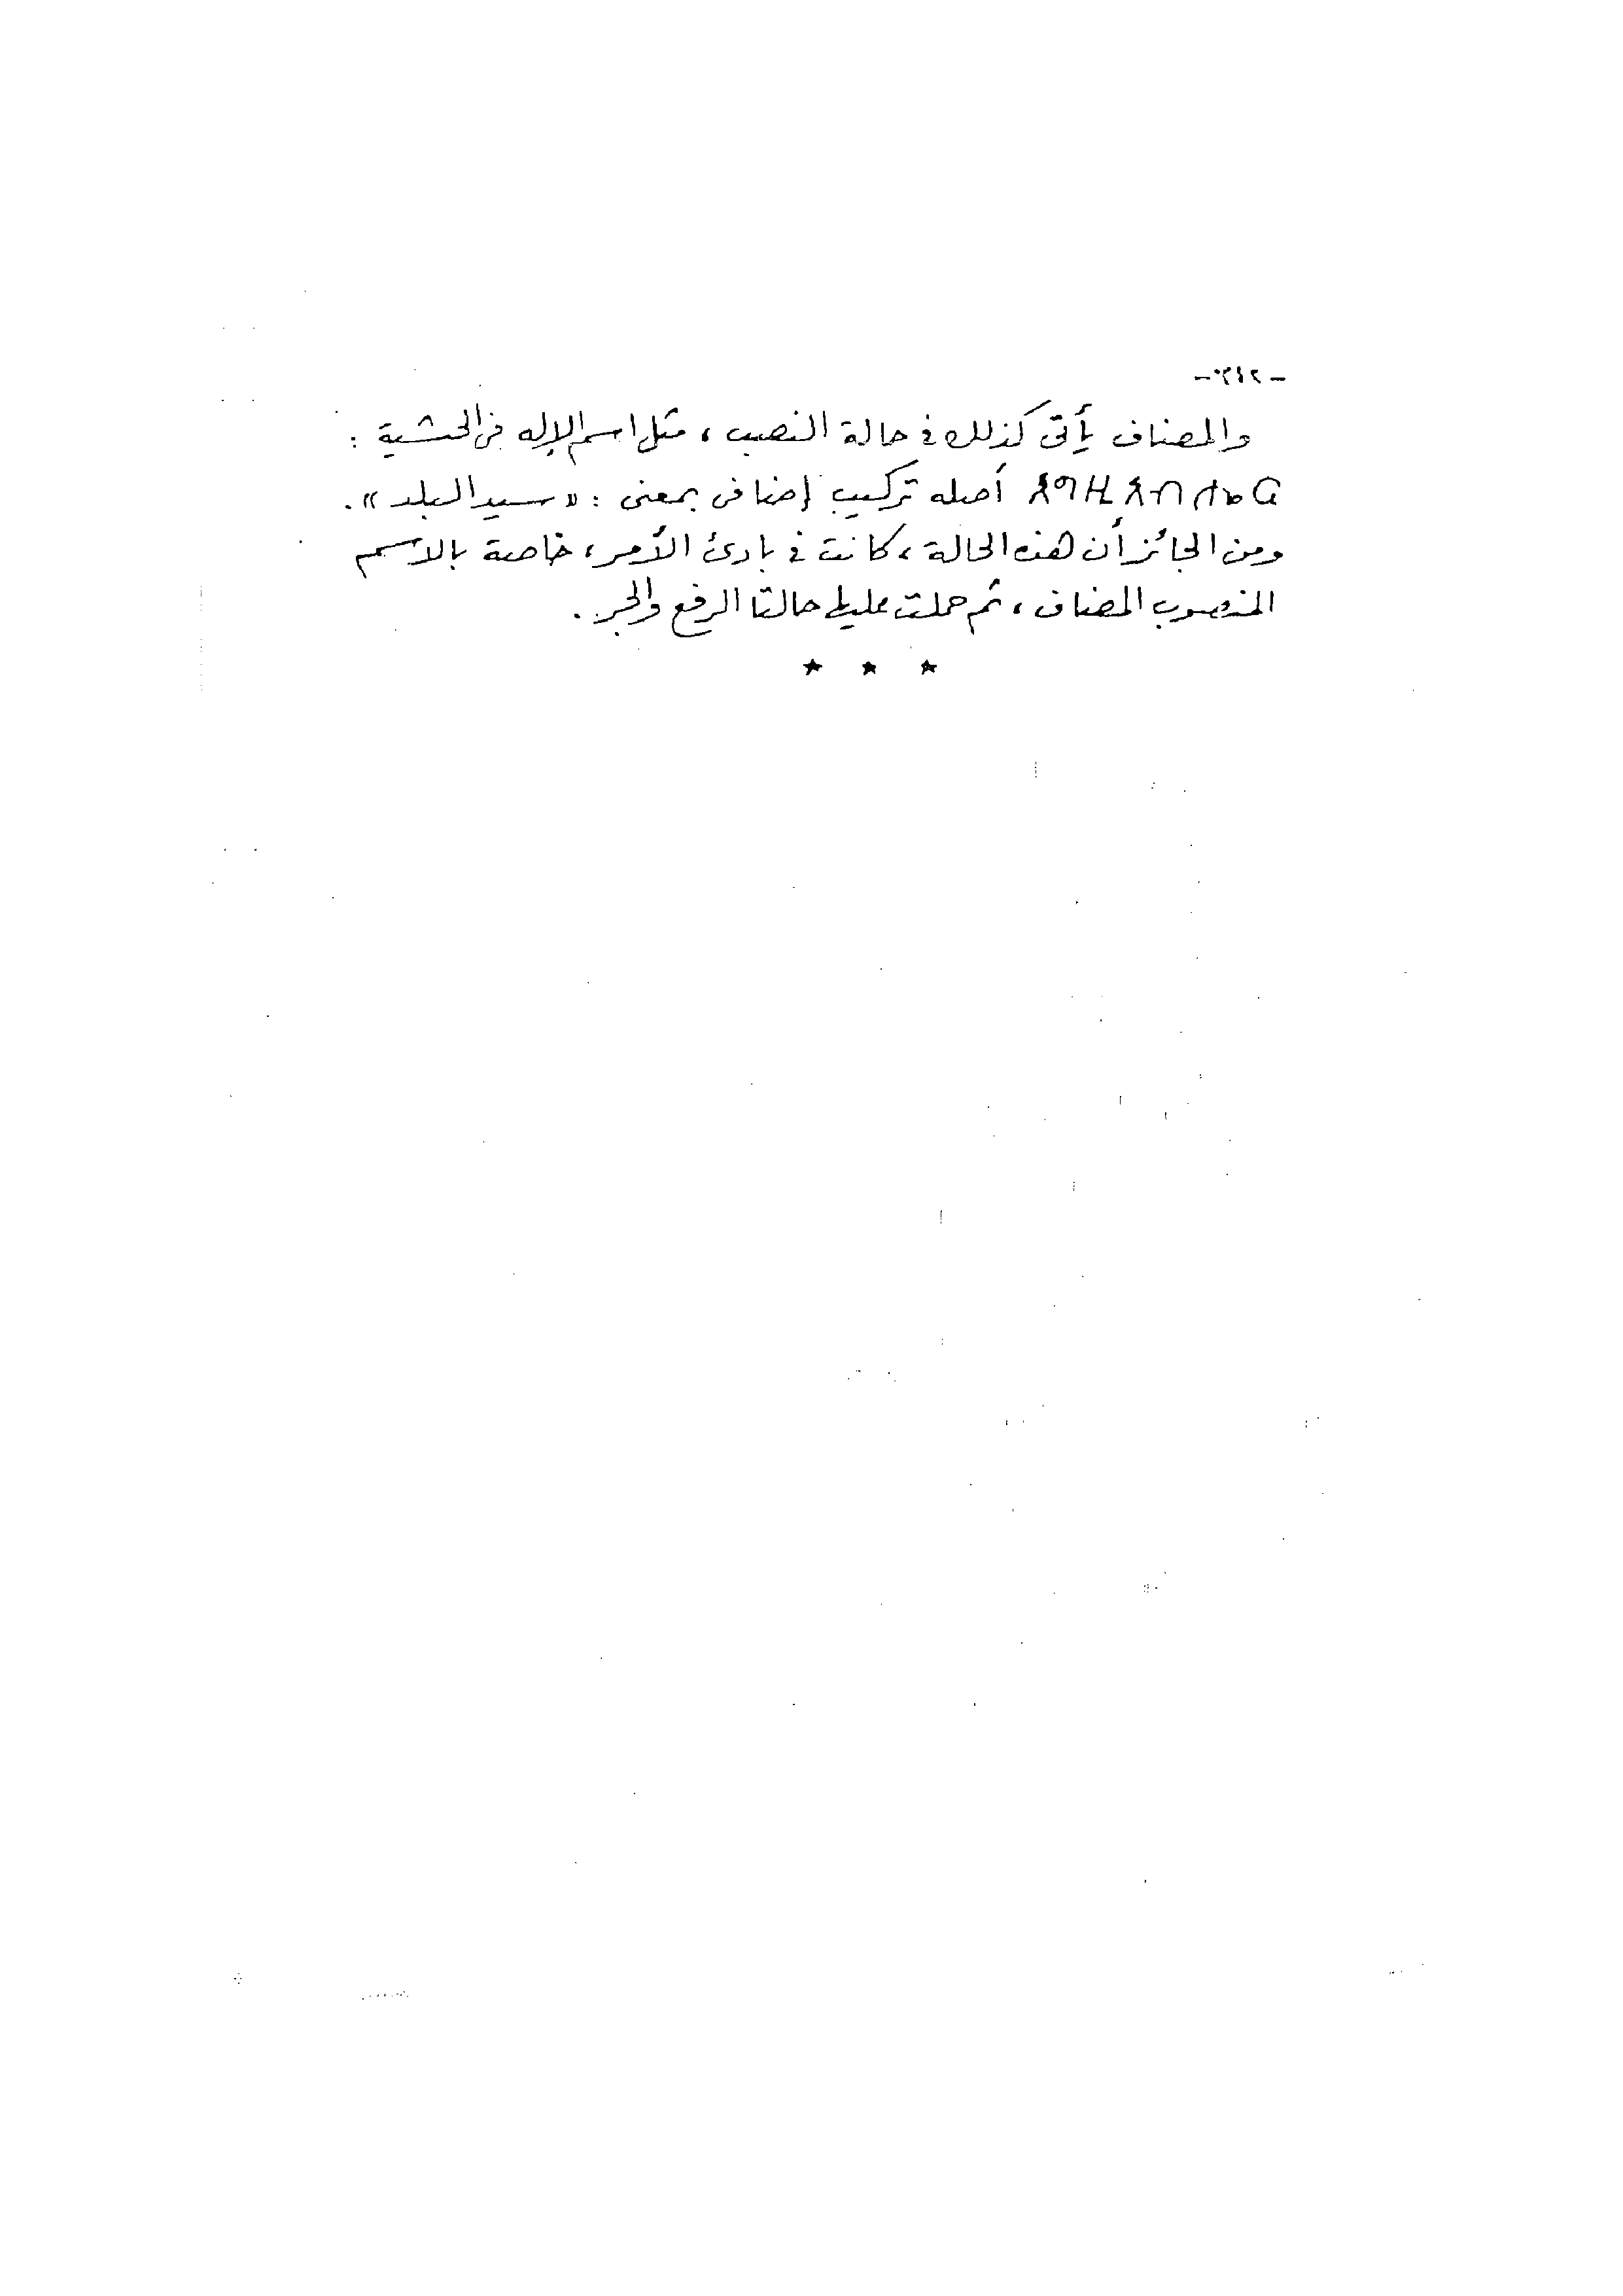 -٢٤٢-
والمضاف يأتى كذلك فى حالة النصب، مثل اسم الإله فى الحبشية :
أصله تركيب إضافى بمعنى : «سيد البلد».
ومن الجائز أن هذه الحالة، كانت فى بادئ الأمر، خاصة بالاسم
المنصوب المضاف، ثم حملت عليها حالتا الرفع والجر.
* * *